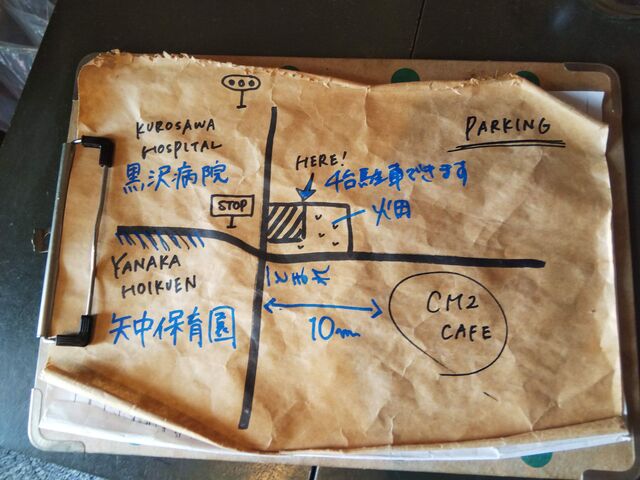 PARKING
KUROSAWA
HOSPITAL
黒沢病院
HERE!
4台駐車できます
STOP
畑
YANAKA
HOIKUEN
矢中保育園
とまれ
10m
CM2
CAFE